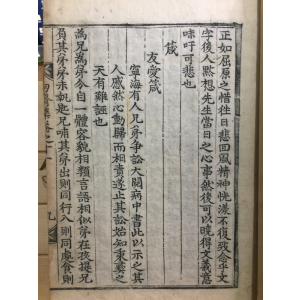 正如屈原之惜往日悲回風精神恍漾不復致念乎文
字後人點想先生當日之心事然後可以曉得文義意
味吁可悲也
箴
友愛箴
寧海有人兄弟爭訟大關病中書此以示之其
人感然心動歸而相責遂止其訟始知秉彝之
天有難誣也
爲兄爲弟分自一體容貌相類言語相似弟在孩提兄
負其弟弟未匙匕兄哺其弟出則同行入則同處食則
九